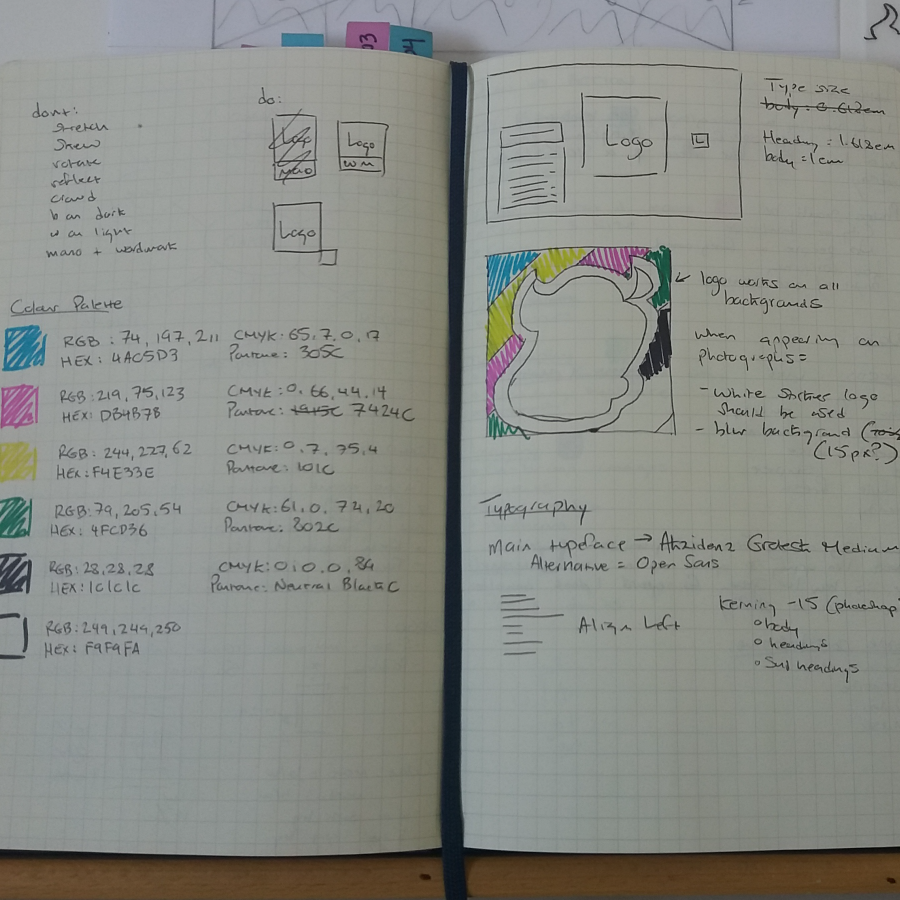 03
04
dont:
stretch
skew
rotate
reflect
crowd
b on dark
w on light
mono + wordmark
do:
Logo
mono
Logo
wm
Logo
Colour Palette
RGB : 74, 197, 211
HEX : 4AC5D3
CMYK: 65, 7, 0, 17
Pantone: 305C
RGB: 219, 75, 123
HEX: DB4B7B
CMYK: 0, 66, 44, 14
Pantone: 1915C 7424C
RGB: 244, 227, 62
HEX: F4E33E
CMYK: 0, 7, 75, 4
Pantone: 101C
RGB: 79, 205, 54
HEX: 4FCD36
CMYK: 61, 0, 74, 20
Pantone: 802C
RGB: 28, 28, 28
HEX: 1C1C1C
CMYK: 0, 0, 0, 84
Pantone: Neutral Black C
RGB: 249, 249, 250
HEX: F9F9FA
Logo
L
Type size
body: 0.618cm
Heading = 1.618cm
body = 1cm
logo works on all
backgrounds
when appearing on
photographs =
- White sticker logo
should be used
- blur background
(15px?)
Typography
Main typeface → Akzidenz Grotesk Medium
Alternative = Open Sans
Align Left
Kerning -15 (photoshop
body
headings
Sub headings